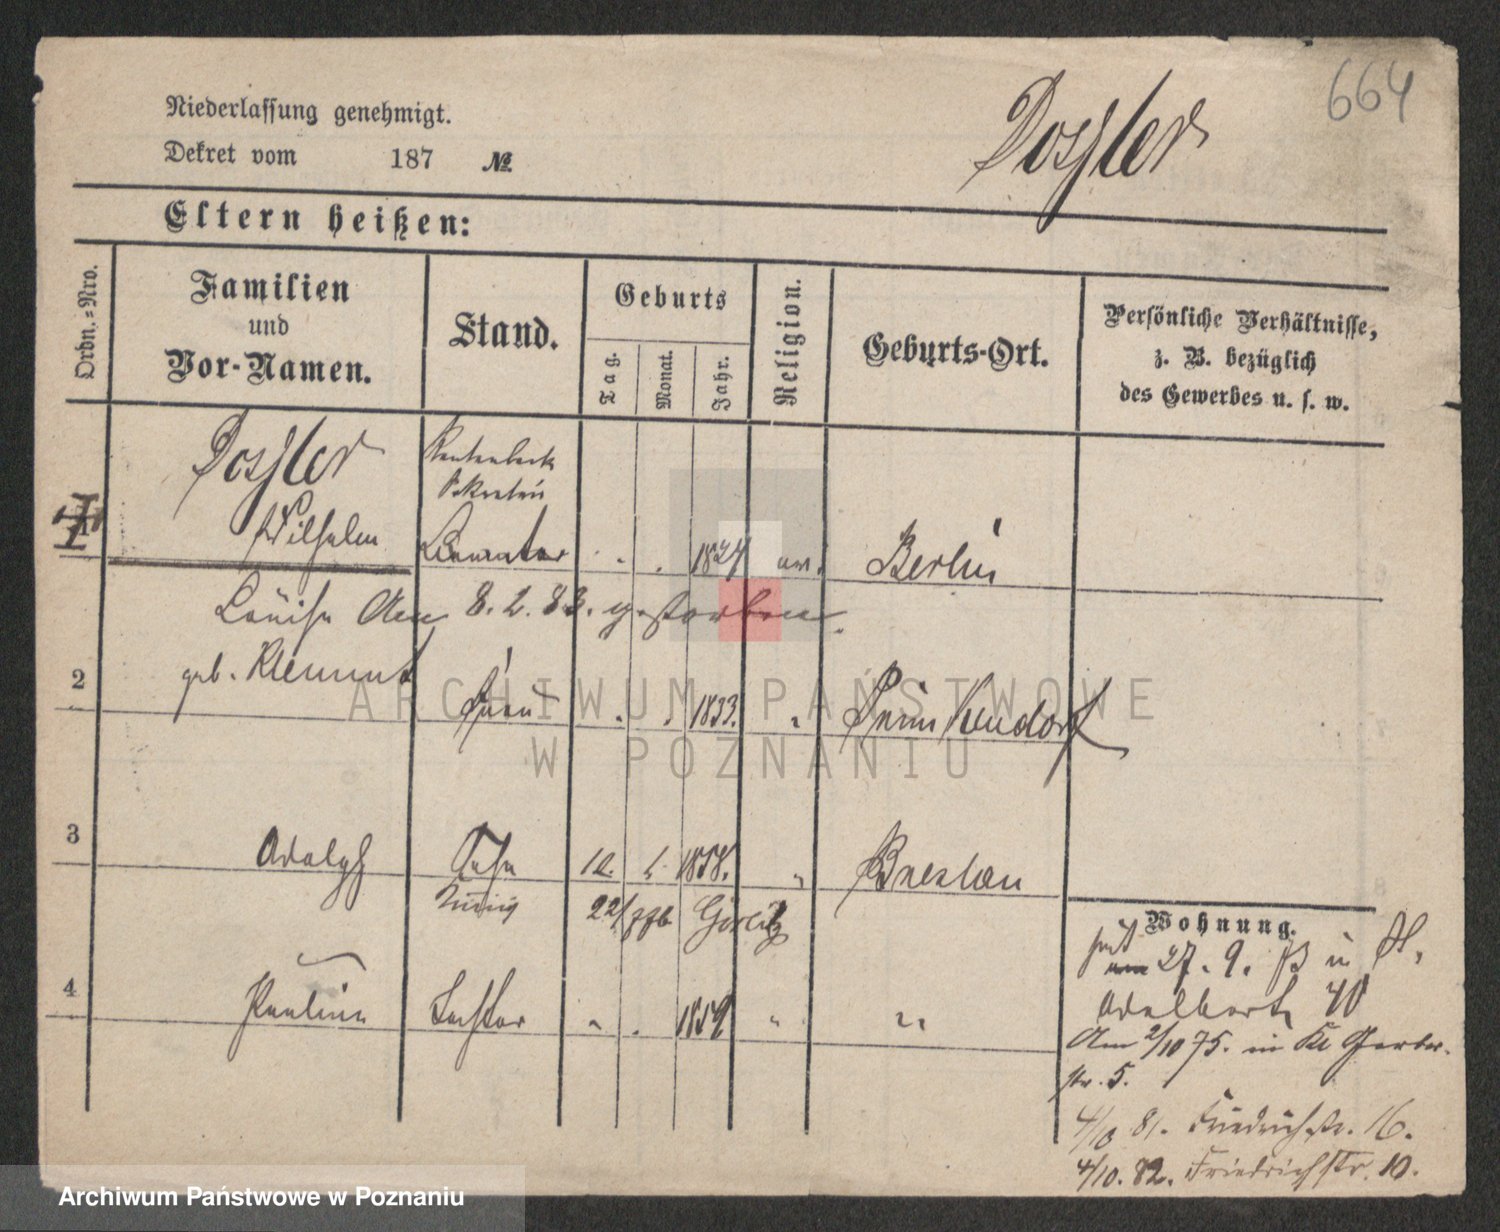 664
Niederlassung genehmigt.
Dekret vom 187 №
Dossler
Eltern heißen:
Ordn.-Nro.
Familien und Vor-Namen.
Stand.
Geburts
Tag.
Monat.
Jahr.
Religion.
Geburts-Ort.
Persönliche Verhältnisse,
z. B. bezüglich
des Gewerbes u. s. w.
Dossler
Wilhelm 18 Berlin
Louise Am 8. 2. 83. gestorben.
2 geb. Klemmt Frau 1833. "
3 Adolph Sohn 10. 1858. " Breslau
22/ Görlitz
4 Pauline Tochter " 1859 " "
Wohnung.
seit 27. 9. in St.
Adalbert 40
Am 2/10 75. in Kl Gerber-
str. 5.
4/10 81. Friedrichstr. 16.
4/10. 82. Friedrichstr. 10.
ARCHIWUM PAŃSTWOWE
W POZNANIU
Archiwum Państwowe w Poznaniu